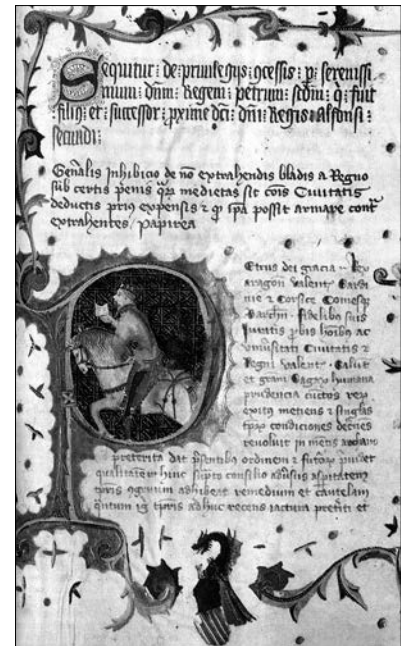 Sequitur de privilegijs ɔcessis p serenissi
mum dnm Regem petrum scdm q fuit
filiꝰ et successor pxime dci dni Regis Alfonsi
secundi
Genalis Inhibicio de no extrahendis bladis a Regno
sub certis penis medietas sit cois Ciuitatis
deductis prius expensis ⁊ ipa possit armare cont
extrahentes Papirea
Petrus dei gracia Rex
aragon valent Sardi
nie ⁊ Corsice Comesq
Barchn fidelibꝫ suis
Juratis pbis hoibꝫ ac
vniusitati Ciuitatis ⁊
Regni valent Salut
et gram humana
prudencia cuctos
metiens ⁊ singlas
condiciones
reuoluit in mentis
preterita dat psentibꝫ ordinem ⁊ futa
qualitatem hinc consilio aduersus aspitatem
tpris adhibeat remedium et cautelam
tpris adhuc recens iactura et